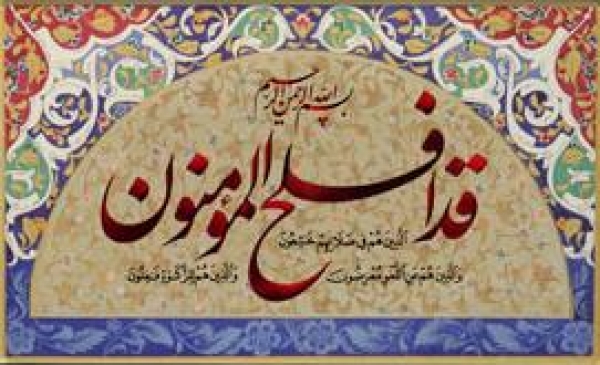 بسم الله الرحمن الرحیم
قد افلح المؤمنون
الَّذینَ هُمْ فی صَلاتِهِمْ خاشِعُونَ
وَالَّذینَ هُمْ عَنِ اللَّغوِ مُعْرِضُونَ
وَالَّذینَ هُمْ لِلزَّکوةِ فاعِلُونَ